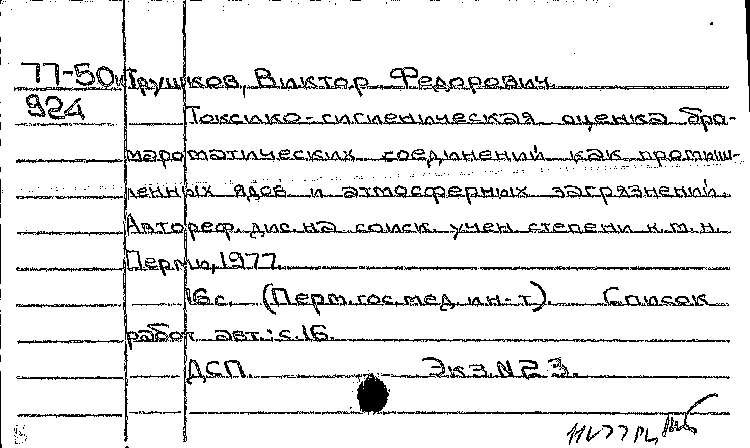 77-50к Трушков, Виктор Федорович
924
Токсико-гигиеническая оценка бро-
мароматических соединений как промыш-
ленных ядов и атмосферных загрязнений.
Автореф. дис. на соиск. учен. степени к.м.н.
Пермь, 1977.
16с. (Перм. гос. мед. ин-т). Список
работ авт.: с. 16.
ДСП. Экз. N 23.